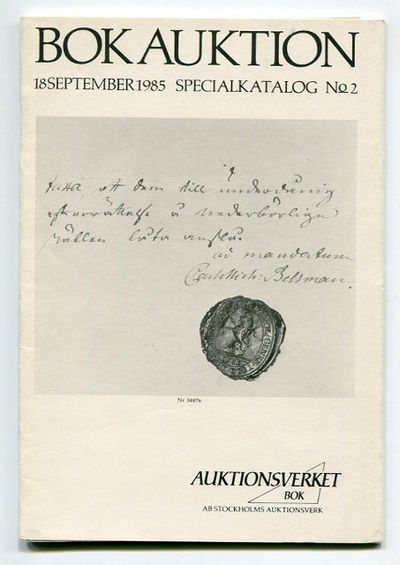 BOK AUKTION
18 SEPTEMBER 1985 SPECIALKATALOG No 2
att dem till underdånig
efterrättelse å vederbörlige
ställen låta anslå.
ad mandatum
Carl Mich: Bellman.
Nr 34876
AUKTIONSVERKET
BOK
AB STOCKHOLMS AUKTIONSVERK